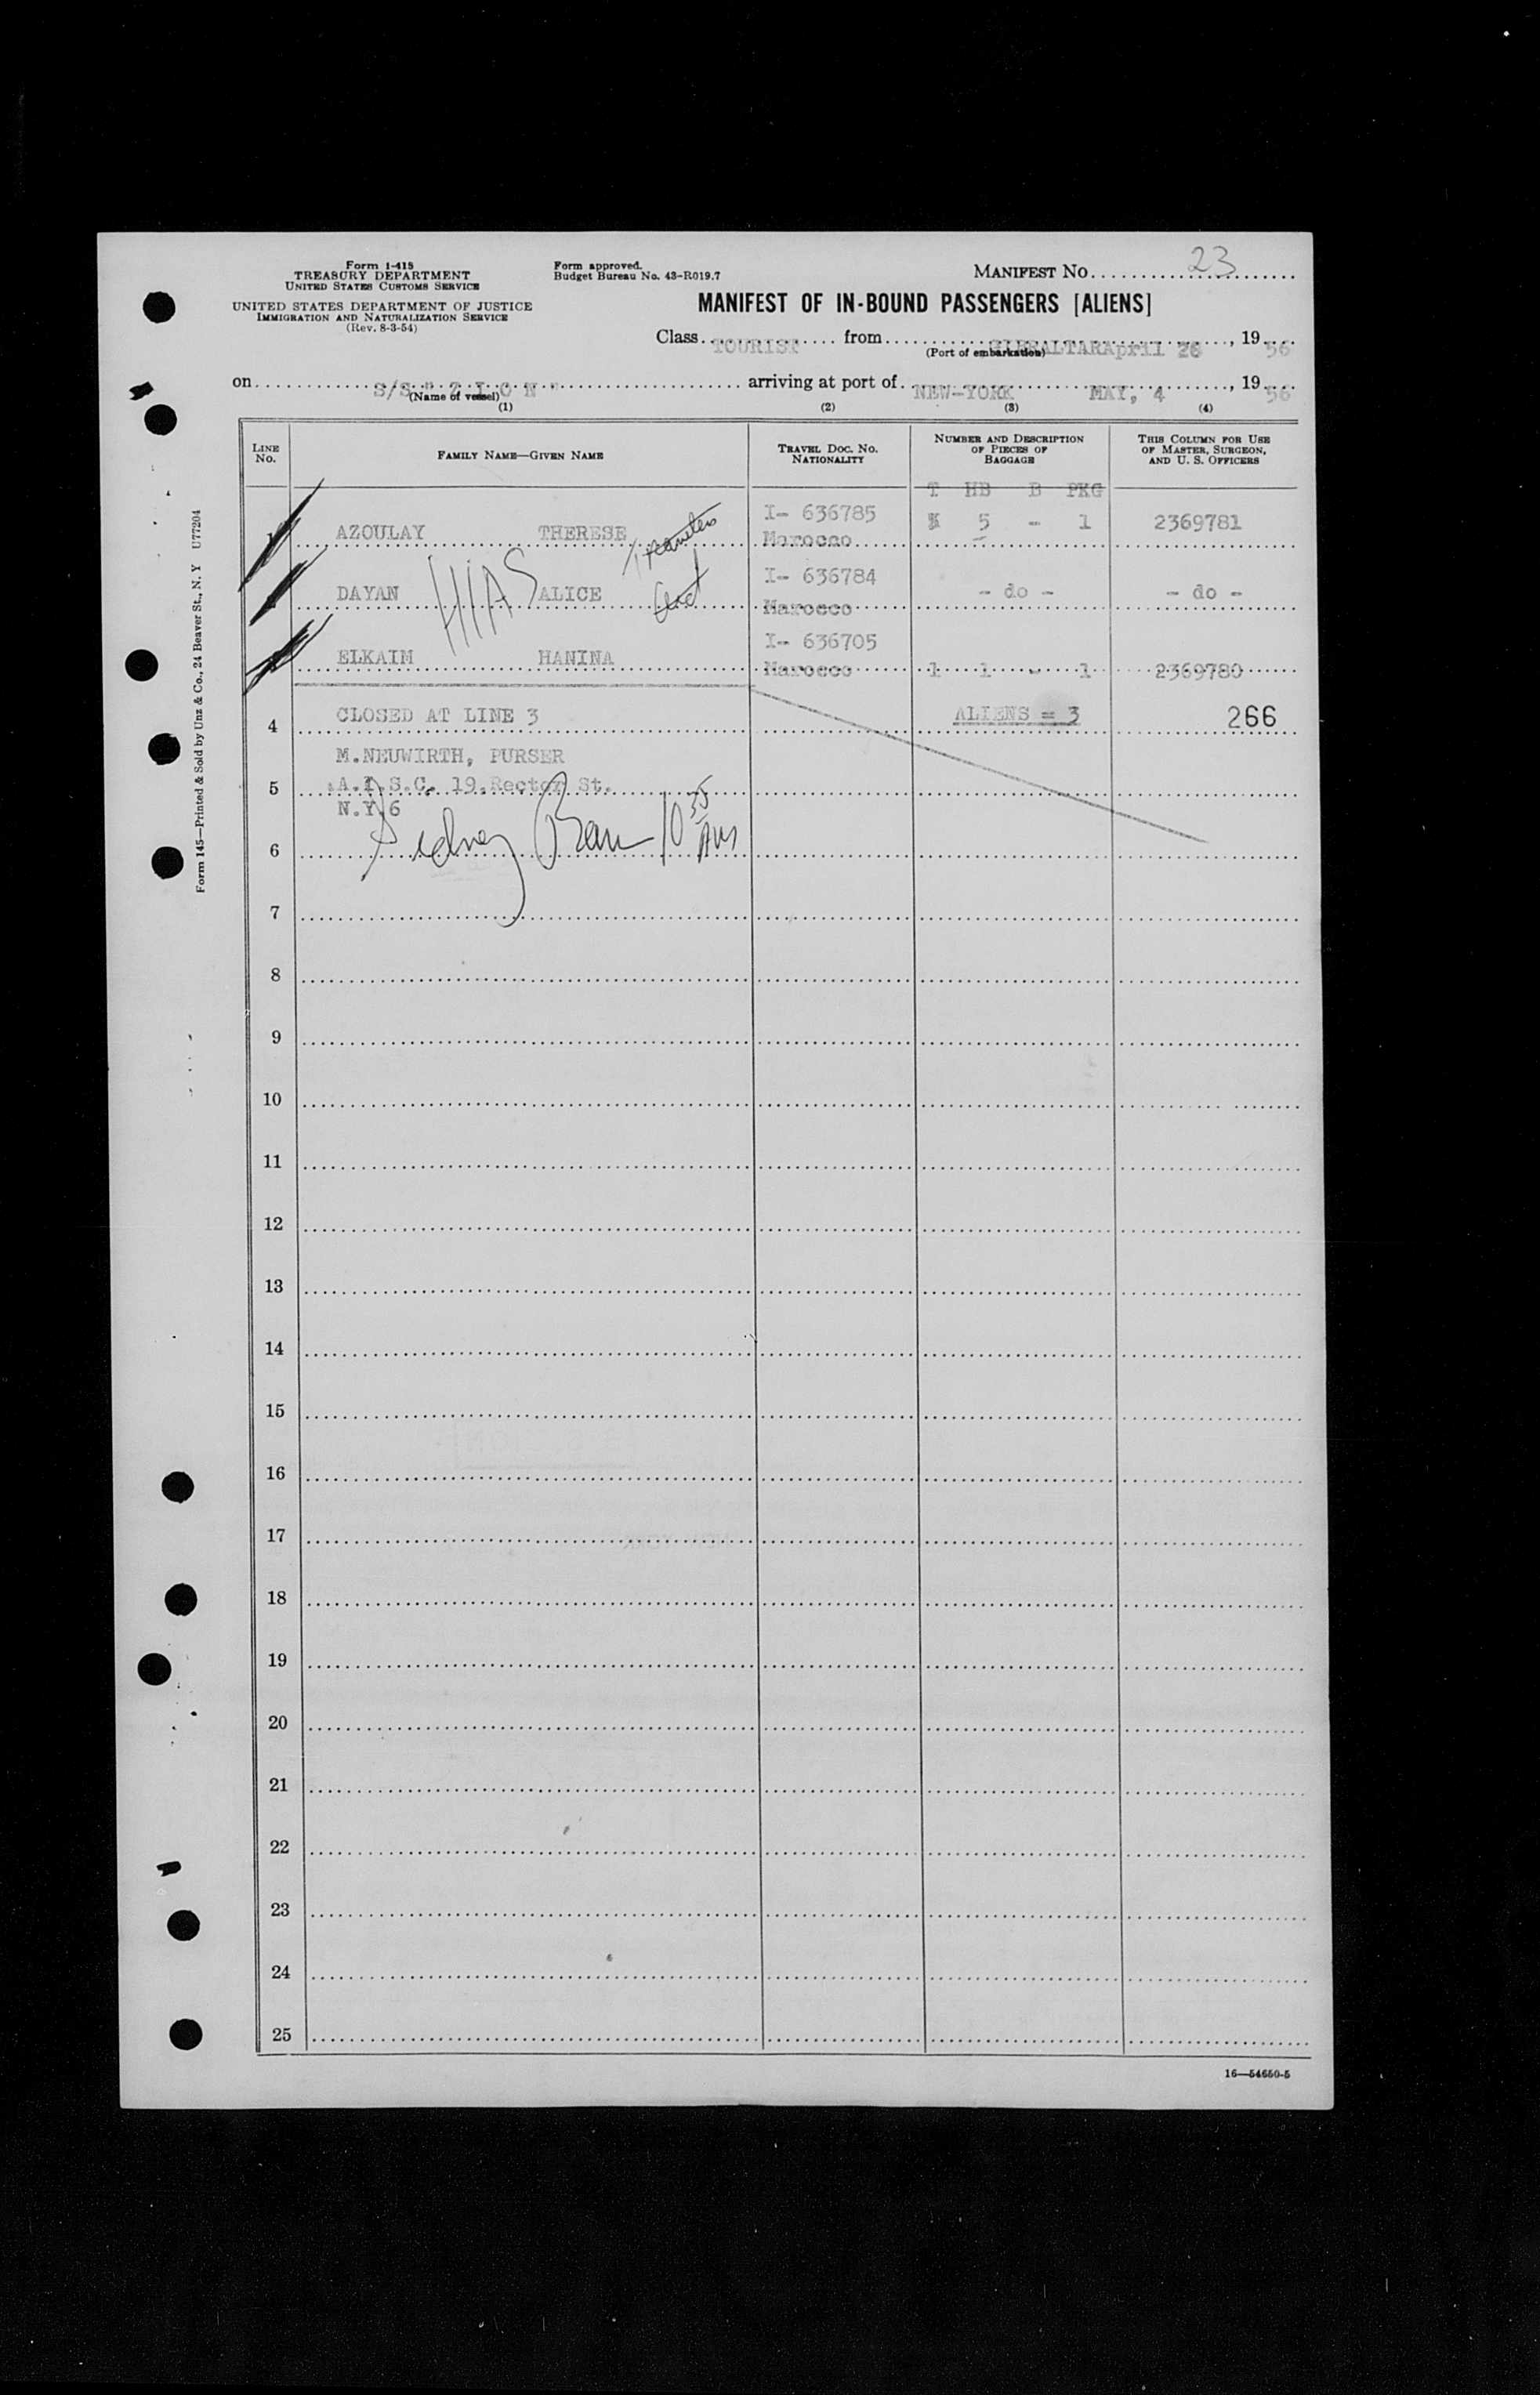 Form I-415
TREASURY DEPARTMENT
UNITED STATES CUSTOMS SERVICE
UNITED STATES DEPARTMENT OF JUSTICE
IMMIGRATION AND NATURALIZATION SERVICE
(Rev. 8-3-54)
Form approved.
Budget Bureau No. 43-R019.7
MANIFEST NO. 23
MANIFEST OF IN-BOUND PASSENGERS [ALIENS]
Class TOURIST from GIBRALTAR April 26, 19 56
(Port of embarkation)
on S/S " Z I O N " arriving at port of NEW-YORK MAY, 4, 19 56
(Name of vessel)
(1) (2) (3) (4)
LINE No. FAMILY NAME—GIVEN NAME TRAVEL DOC. NO. NATIONALITY NUMBER AND DESCRIPTION OF PIECES OF BAGGAGE THIS COLUMN FOR USE OF MASTER, SURGEON, AND U. S. OFFICERS
T HB B PKG
AZOULAY THERESE I- 636785 Marocco 5 - 1 2369781
DAYAN HIAS ALICE I- 636784 Marocco - do - - do -
ELKAIM HANINA I- 636705 Marocco 1 1 - 1 2369780
4 CLOSED AT LINE 3 ALIENS = 3 266
M.NEUWIRTH, PURSER
5 A.I.S.C. 19.Rector St.
N.Y.6
6 Sidney 10 35 AM
7
8
9
10
11
12
13
14
15
16
17
18
19
20
21
22
23
24
25
16—54650-5
Form 145—Printed & Sold by Unz & Co., 24 Beaver St., N. Y U77204